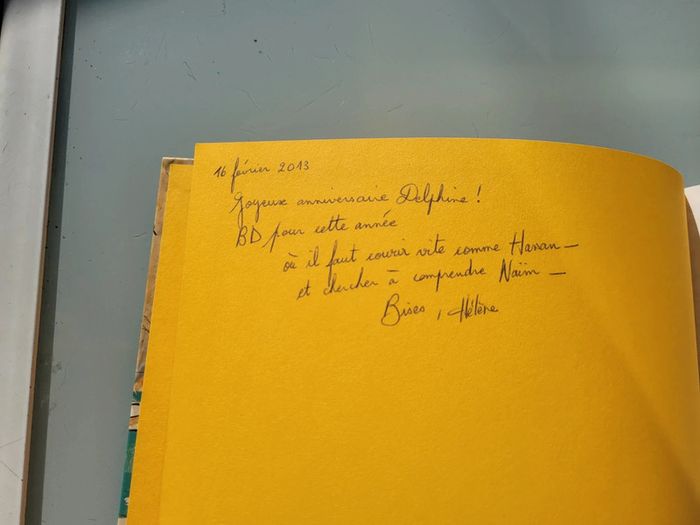 16 février 2013
Joyeux anniversaire Delphine !
BD pour cette année
où il faut courir vite comme Hanan —
et chercher à comprendre Naïm —
Bises, Hélène